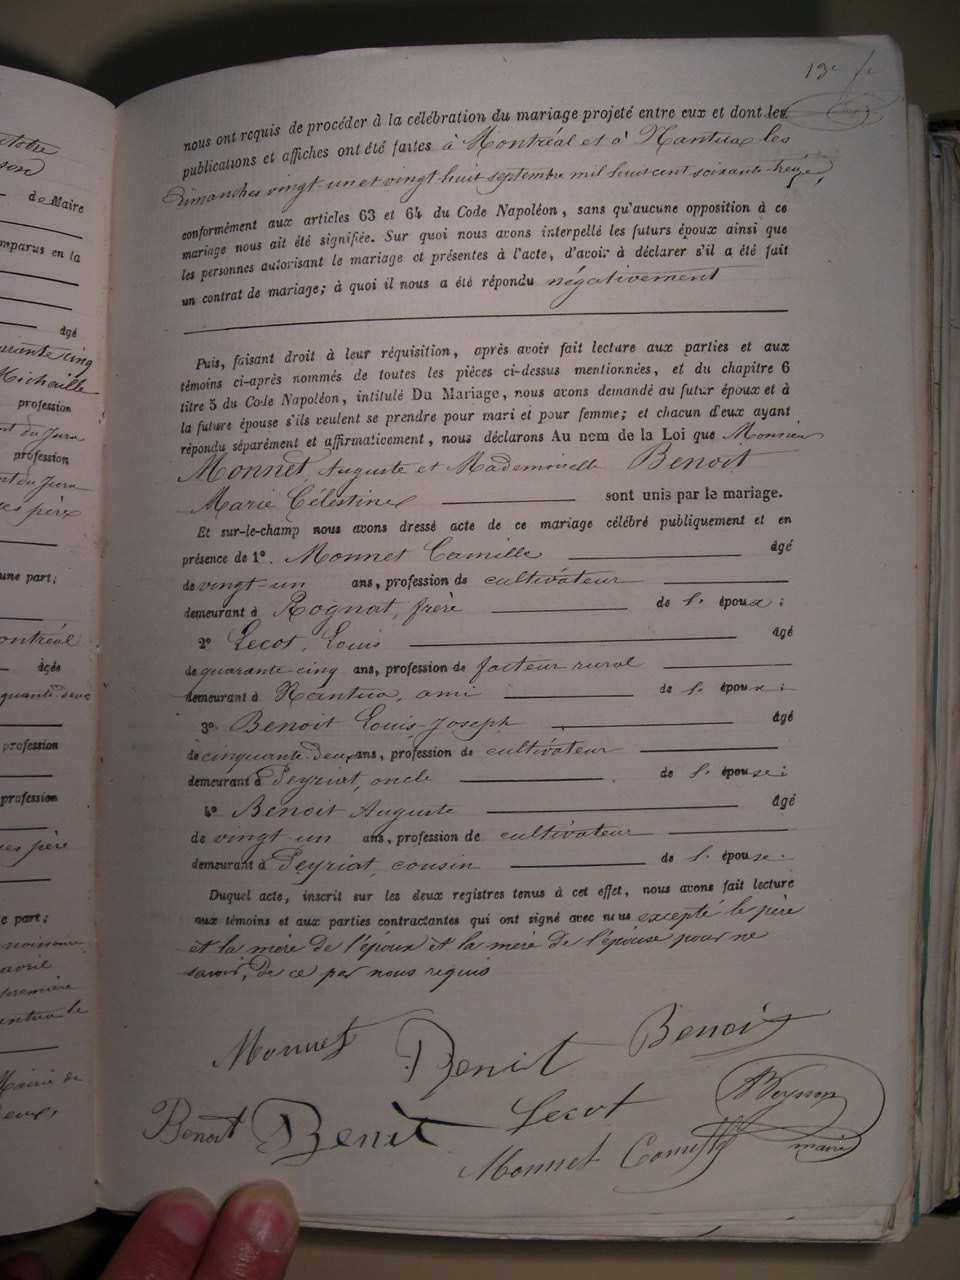 ctobre
son
de Maire
mparus en la
âgé
arante cinq
Michaille
profession
nt du Jura
profession
nt du Jura
une part;
ontréal
âgés
profession
profession
e part;
avril
première
antua le
Mairie de
13e
nous ont requis de procéder à la célébration du mariage projeté entre eux et dont les
publications et affiches ont été faites à Montréal et à Nantua les
Dimanches vingt-un et vingt-huit septembre mil huit cent soixante-treize,
conformément aux articles 63 et 64 du Code Napoléon, sans qu'aucune opposition à ce
mariage nous ait été signifiée. Sur quoi nous avons interpellé les futurs époux ainsi que
les personnes autorisant le mariage et présentes à l'acte, d'avoir à déclarer s'il a été fait
un contrat de mariage; à quoi il nous a été répondu négativement
Puis, faisant droit à leur réquisition, après avoir fait lecture aux parties et aux
témoins ci-après nommés de toutes les pièces ci-dessus mentionnées, et du chapitre 6
titre 5 du Code Napoléon, intitulé Du Mariage, nous avons demandé au futur époux et à
la future épouse s'ils veulent se prendre pour mari et pour femme; et chacun d'eux ayant
répondu séparément et affirmativement, nous déclarons Au nom de la Loi que Monsieur
Monnet, Auguste et Mademoiselle Benoit
Marie Célestine sont unis par le mariage.
Et sur-le-champ nous avons dressé acte de ce mariage célébré publiquement et en
présence de 1º. Monnet Camille âgé
de vingt-un ans, profession de cultivateur
demeurant à Rognat, frère de l' époux;
2º Lecot, Louis âgé
de quarante-cinq ans, profession de facteur rural
demeurant à Nantua, ami de l' époux;
3º Benoit Louis-Joseph âgé
de cinquante-deux ans, profession de cultivateur
demeurant à Peyriat, oncle de l' épouse;
4º Benoit Auguste âgé
de vingt-un ans, profession de cultivateur
demeurant à Peyriat, cousin de l' épouse.
Duquel acte, inscrit sur les deux registres tenus à cet effet, nous avons fait lecture
aux témoins et aux parties contractantes qui ont signé avec nous excepté le père
et la mère de l'époux et la mère de l'épouse pour ne
savoir, de ce par nous requis
Monnet Benoit Benoit
Benoit Benoit Lecot
Monnet Camille maire